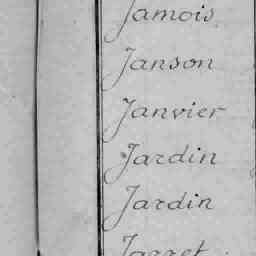 Jamois
Janson
Janvier
Jardin
Jardin
Jarret